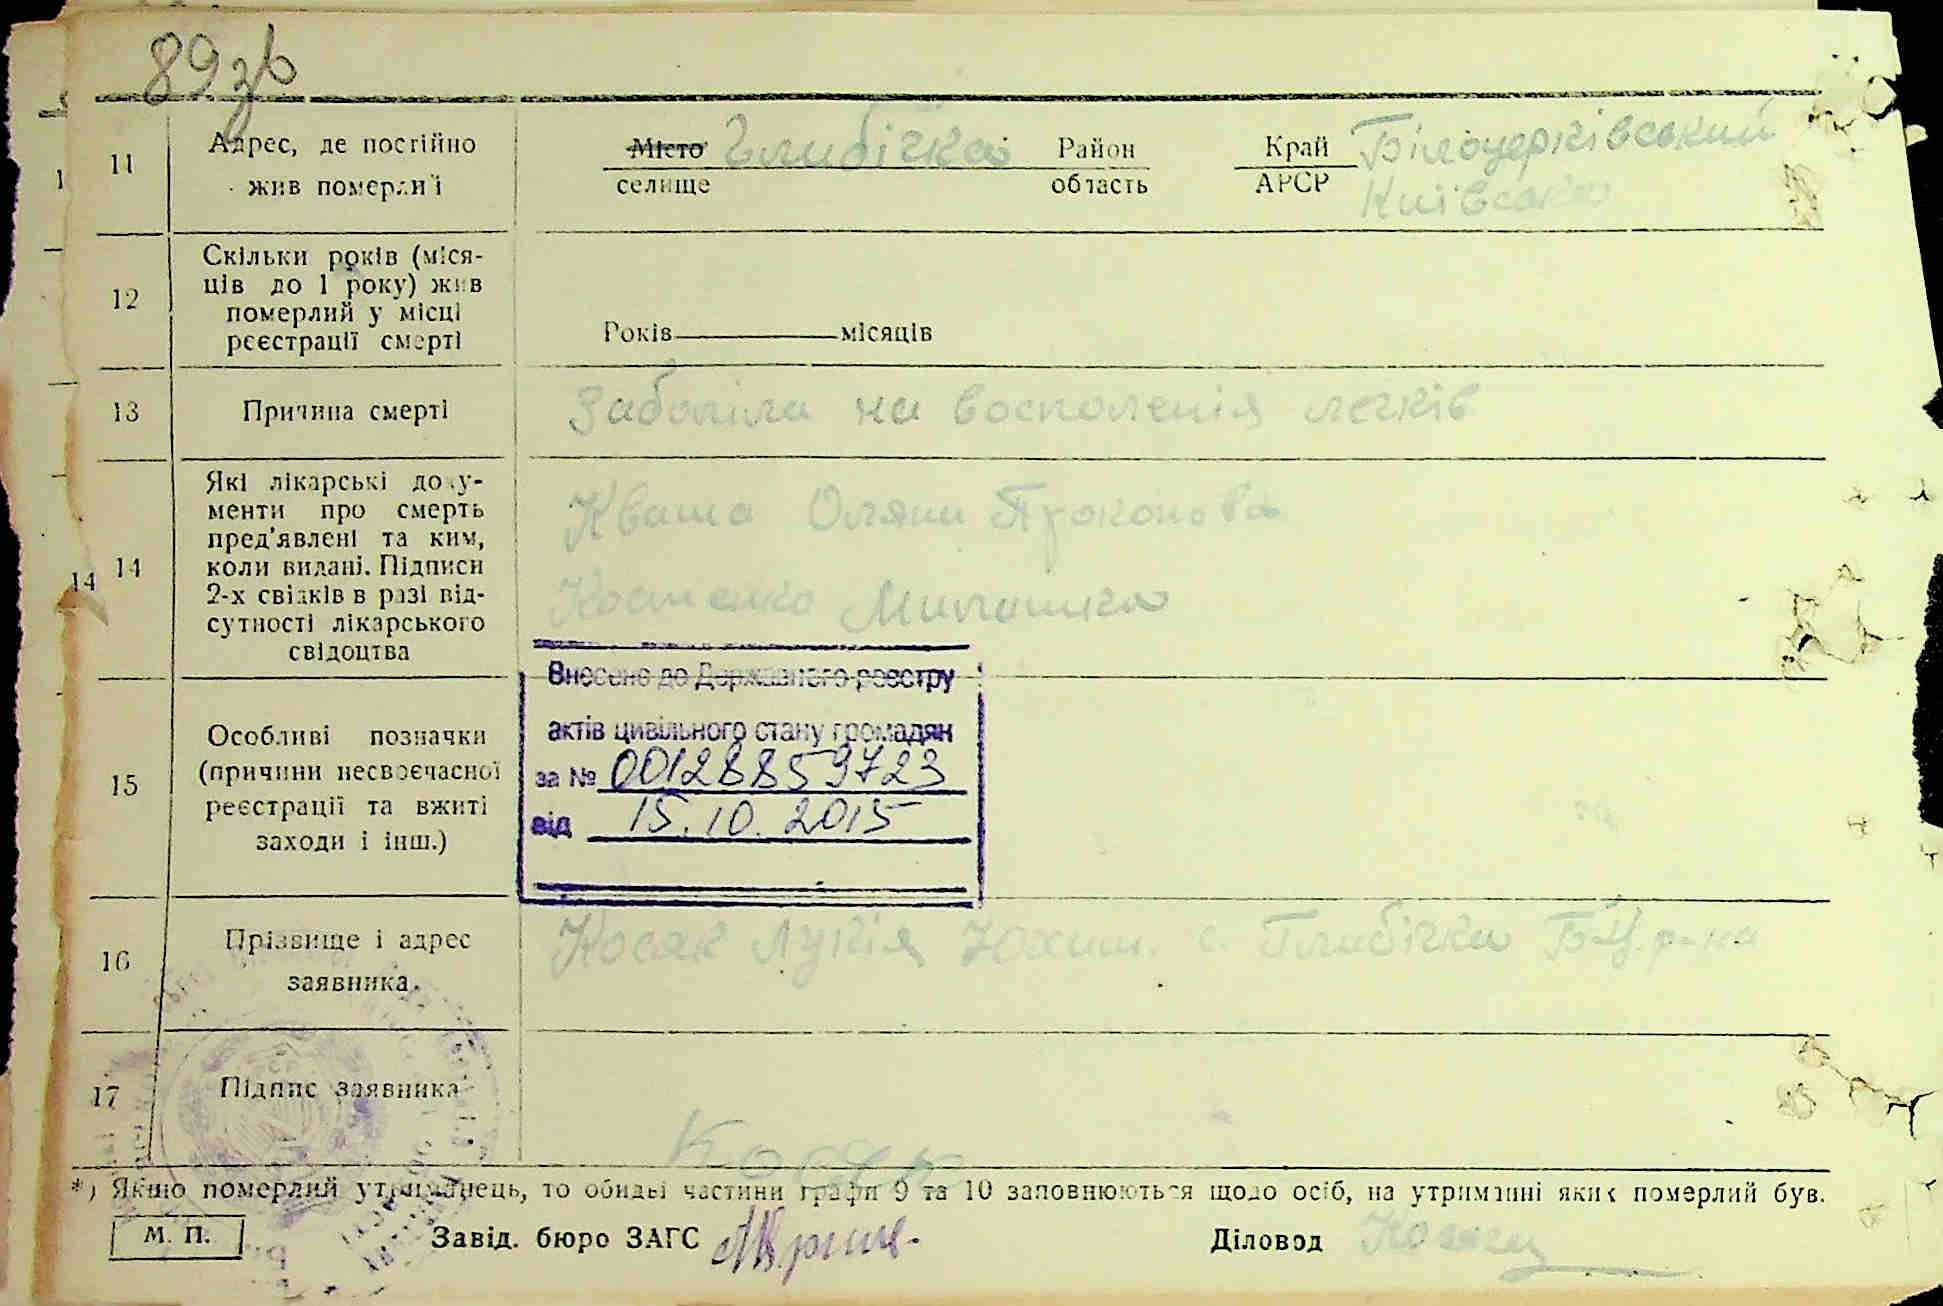 89зв
11
Адрес, де постійно
жив померлий
Місто Глибічка Район Край Білоцерківський
селище область АРСР Київська
12
Скільки років (міся-
ців до 1 року) жив
померлий у місці
реєстрації смерті
Років місяців
13
Причина смерті
Заболіла на восполенія легків
14
14
Які лікарські доку-
менти про смерть
пред'явлені та ким,
коли видані. Підписи
2-х свідків в разі від-
сутності лікарського
свідоцтва
Кваша Оляни
Костенко
Внесено до Державного реєстру
актів цивільного стану громадян
за № 00128859723
від 15.10.2015
15
Особливі позначки
(причини несвоєчасної
реєстрації та вжиті
заходи і інш.)
16
Прізвище і адрес
заявника.
Косяк Лукія Юхим. с Глибічка Б-Ц. р-на
17
Підпис заявника
Косяк
*) Якщо померлий утриманець, то обидві частини графи 9 та 10 заповнюються щодо осіб, на утриманні яких померлий був.
М. П.
Завід. бюро ЗАГС
Діловод